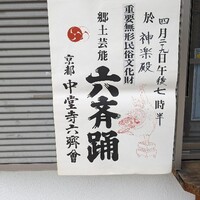 四月二十九日午後七時半
於 神楽殿
重要無形民俗文化財
郷土芸能
六斉踊
京都 中堂寺六齊會